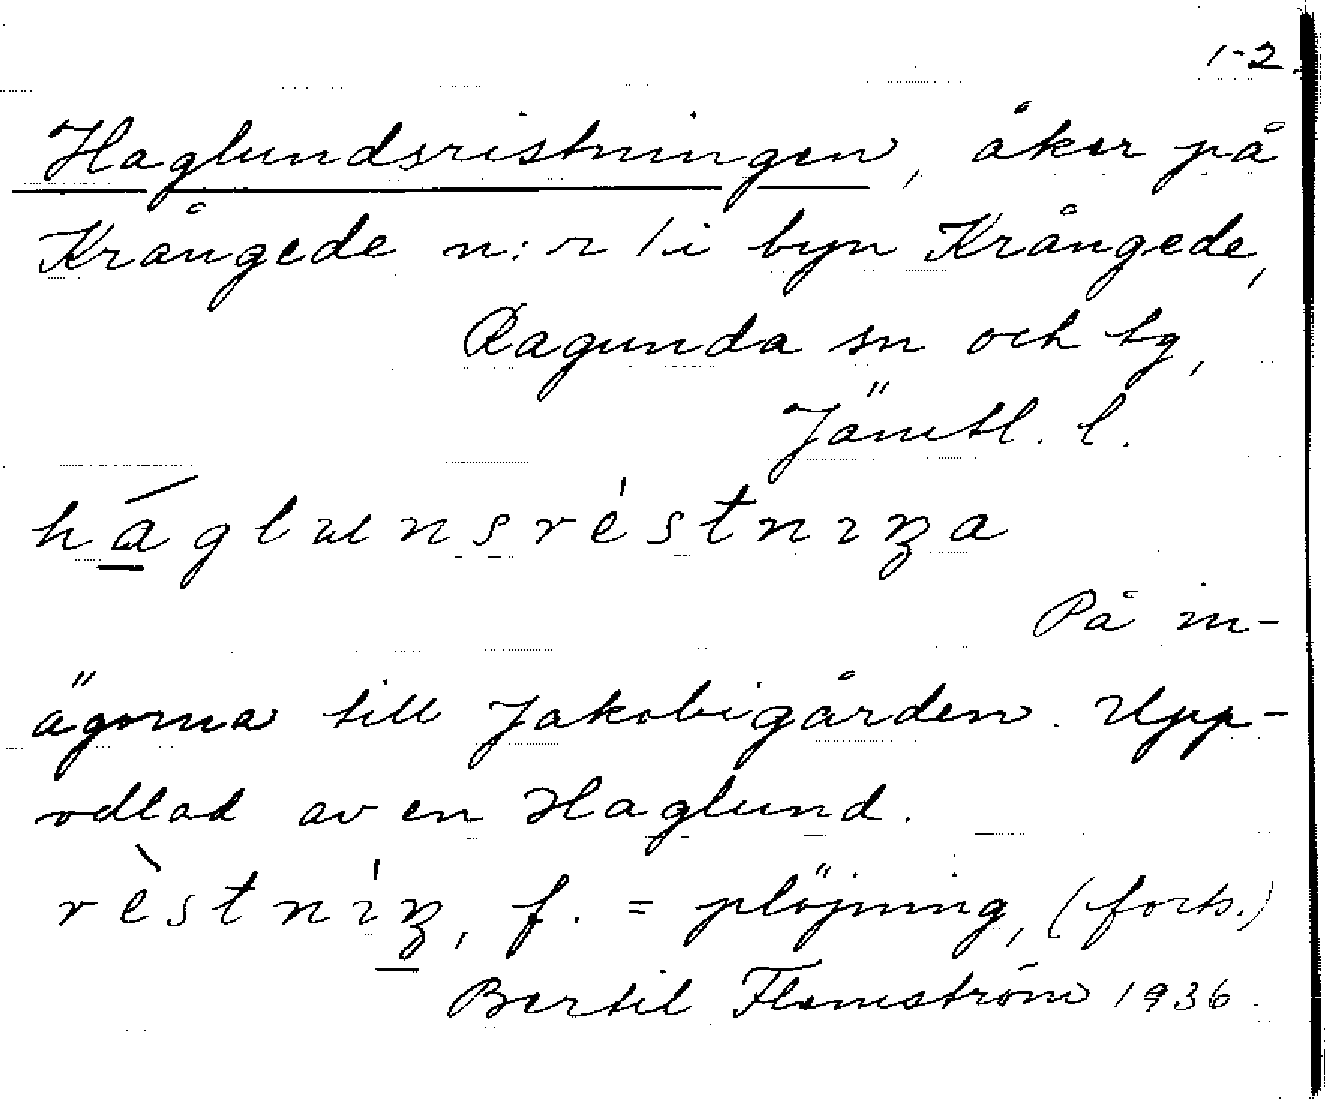 1-2.
Haglundsristningen, åker på
Krångede n:r 1 i byn Krångede,
Ragunda sn och tg,
Jämtl. l.
háglunsrèstnıŋa
På in-
ägorna till Jakobigården. Upp-
odlad av en Haglund.
rèstnıŋ, f. = plöjning, (forts.)
Bertil Flemström 1936.